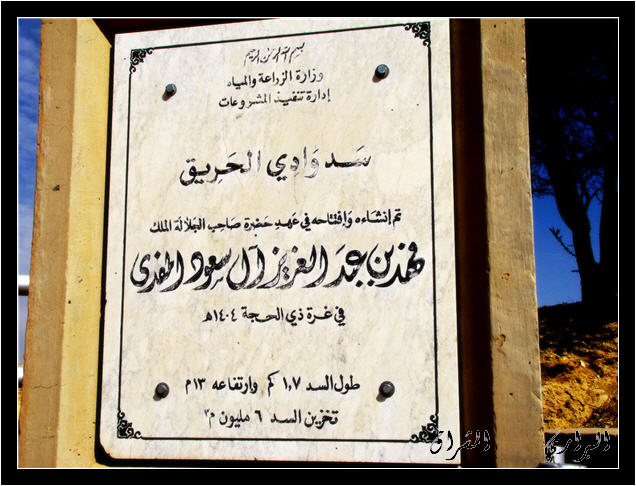 بسم الله الرحمن الرحيم
وزارة الزراعة والمياه
إدارة تنفيذ المشروعات
سَد وَادي الحَريق
تم إنشاءه وَافتتاحه في عَهدِ حَضرة صَاحِب الجَلالَة الملك
فهد بن عبد العزيز آل سعود المفدى
في غرة ذي الحجة ١٤٠٤هـ
طول السد ١,٧ كم وارتفاعه ١٣م
تخزين السد ٦ مليون م٣